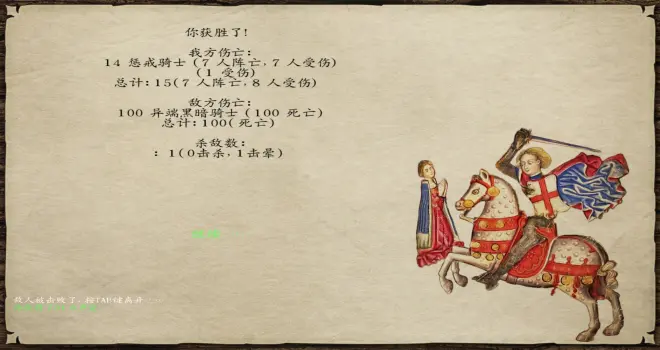 你获胜了!
我方伤亡:
14 惩戒骑士 (7 人阵亡, 7 人受伤)
(1 受伤)
总计: 15(7 人阵亡, 8 人受伤)
敌方伤亡:
100 异端黑暗骑士 (100 死亡)
总计: 100( 死亡)
杀敌数:
: 1(0击杀, 1击晕)
敌人被击败了, 按TAB键离开